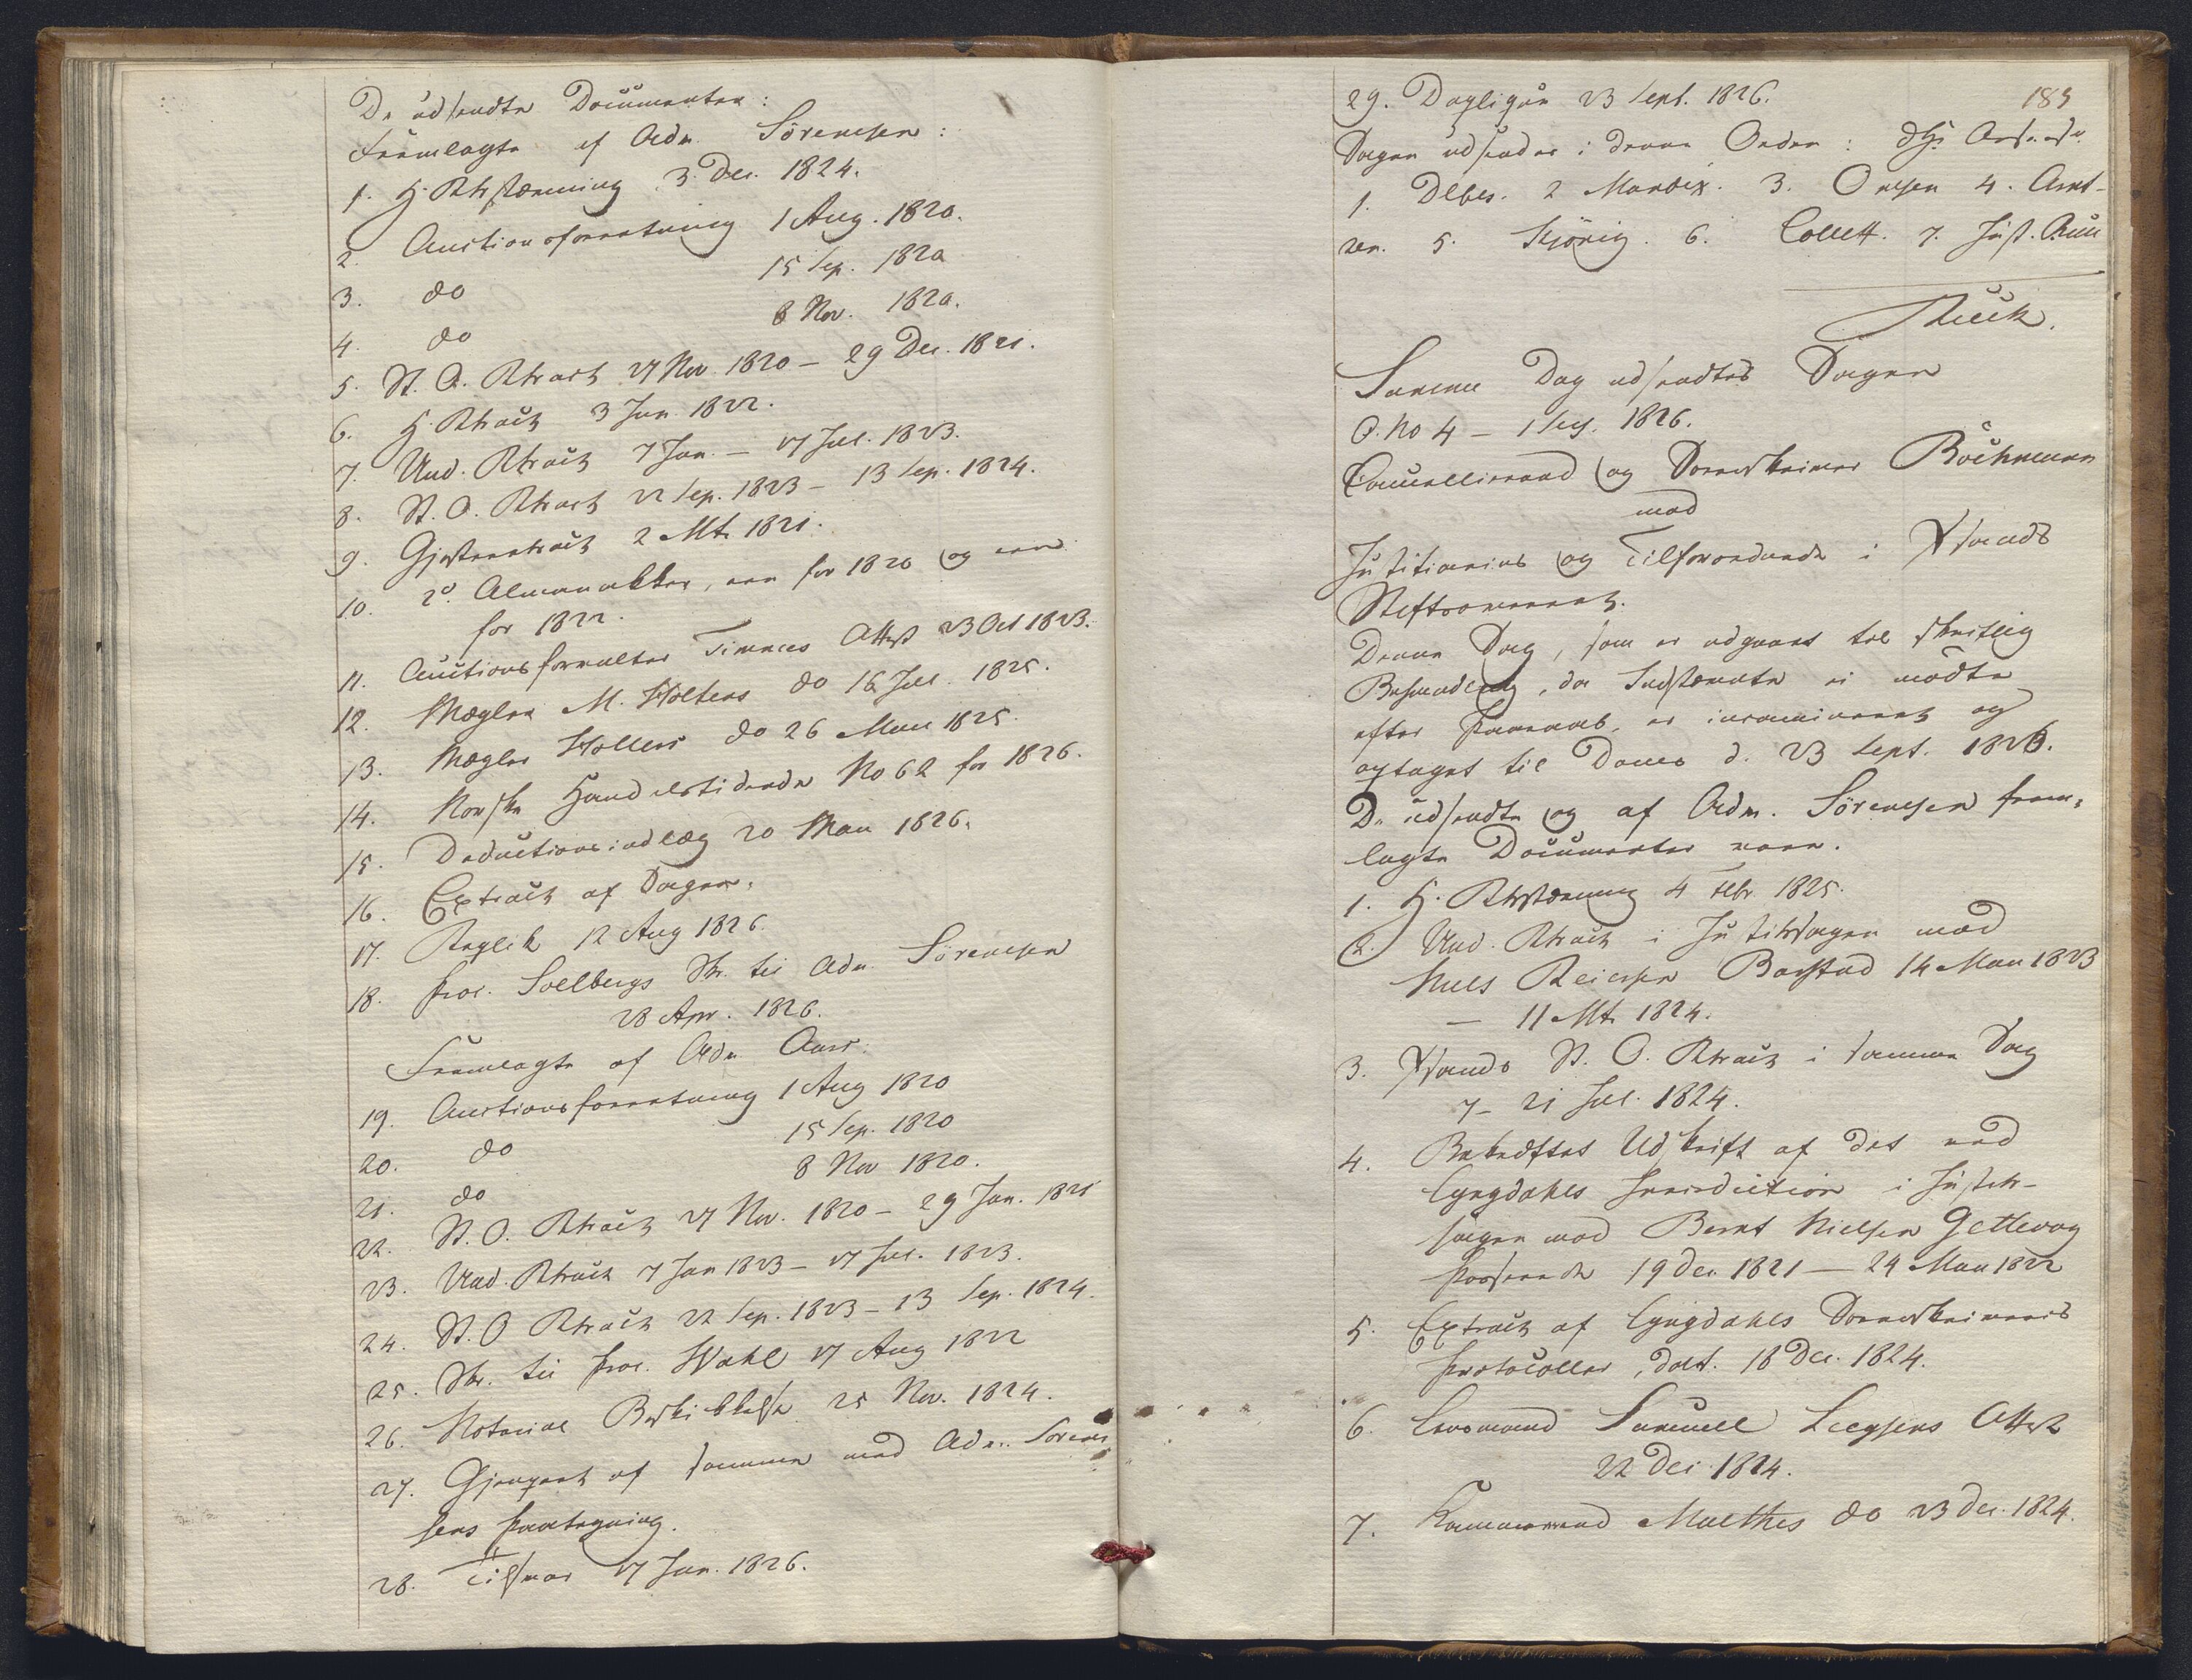 De udsendte Documenter:
Fremlagte af Adv. Sörensen:
1. H. Rts stævning 3 Dec. 1824.
2. Auctionsforretning 1 Aug. 1820.
3. do 15 Sep. 1820
4. do 8 Nov. 1820.
5. St. O. Rtsact 27 Nov. 1820 – 29 Dec. 1821.
6. H. Rtsact 3 Jan. 1822.
7. Und. Rtsact 7 Jan. – 17 Jul. 1823.
8. St. O. Rtsact 22 Sep. 1823 – 13 Sep. 1824.
9. Gjesteretsact 2 Mts 1821.
10. 2de Almanakker, een for 1820 og een
for 1822.
11. Auctionsforvalter Attest 23 Oct 1823.
12. Mægler M. Holters do 16 Jul. 1825.
13. Mægler do 26 Mai 1825.
14. Norske Handelstidende No 62 for 1826.
15. Deductionsindlæg 20 Mai 1826.
16. Extract af Sagen.
17. Replik 12 Aug 1826.
18. Proc. Soelbergs Skr. til Adv. Sörensen
28 Apr. 1826.
Fremlagte af Adv.
19. Auctionsforretning 1 Aug 1820
20. do 15 Sep. 1820
21. do 8 Nov 1820.
22. St. O. Rtsact 27 Nov. 1820 – 29 Jan. 1821
23. Und. Rtsact 7 Jan 1823 – 17 Jul. 1823.
24. St. O Rtsact 22 Sep. 1823 – 13 Sep. 1824.
25. Skr. til Proc. Wahl 17 Aug 1822
26. Notarial Beskikkelse 25 Nov. 1824.
27. Gjenpart af samme med Adv. Sören
sens Paategning.
28. Tilsvar 17 Jun. 1826.
29. Dupliqve 23 Sept. 1826. 189
Sagen udsendes i denne Orden:
1. Debes. 2 Manbey. 3. Omsen 4. Arnt-
zen. 5. Kjönig. 6. Collett. 7. Just.
Samme Dag udsendtes Sagen
O. No 4 – 1 Ses. 1826.
Cancellieraad og Sorenskriver
mod
Justitiarius og Tilforordnede i Xsands
Stiftsoverret.
Denne Sag, som er udgaaet til skriftlig
Behandling, da Indstævnte ei mödte
efter , er incamineret og
optaget til Doms d. 23 Sept. 1826.
De udsendte og af Adv. Sörensen frem-
lagte Documenter vare.
1. H. Rtsstævning 4 Febr 1825.
2. Und. Rtsact i Justitssagen mod
Niels Reiersen 14 Mai 1823
– 11 Mts 1824.
3. Xsands St. O. Rtsact i samme Sag
7 – 21 Jul. 1824.
4. Bekræftet Udskrift af det ved
Lyngdahls Jurisdiction i Justits-
sagen mod Bernt Nielsen Gettevog
passerede 19 Dec. 1821 – 24 Mai 1822
5. Extract af Lyngdahls Sorenskriveries
Protocoller, dat. 18 Dec. 1824.
6. Lensmand Attest
22 Dec. 1824.
7. do 23 Dec. 1824.